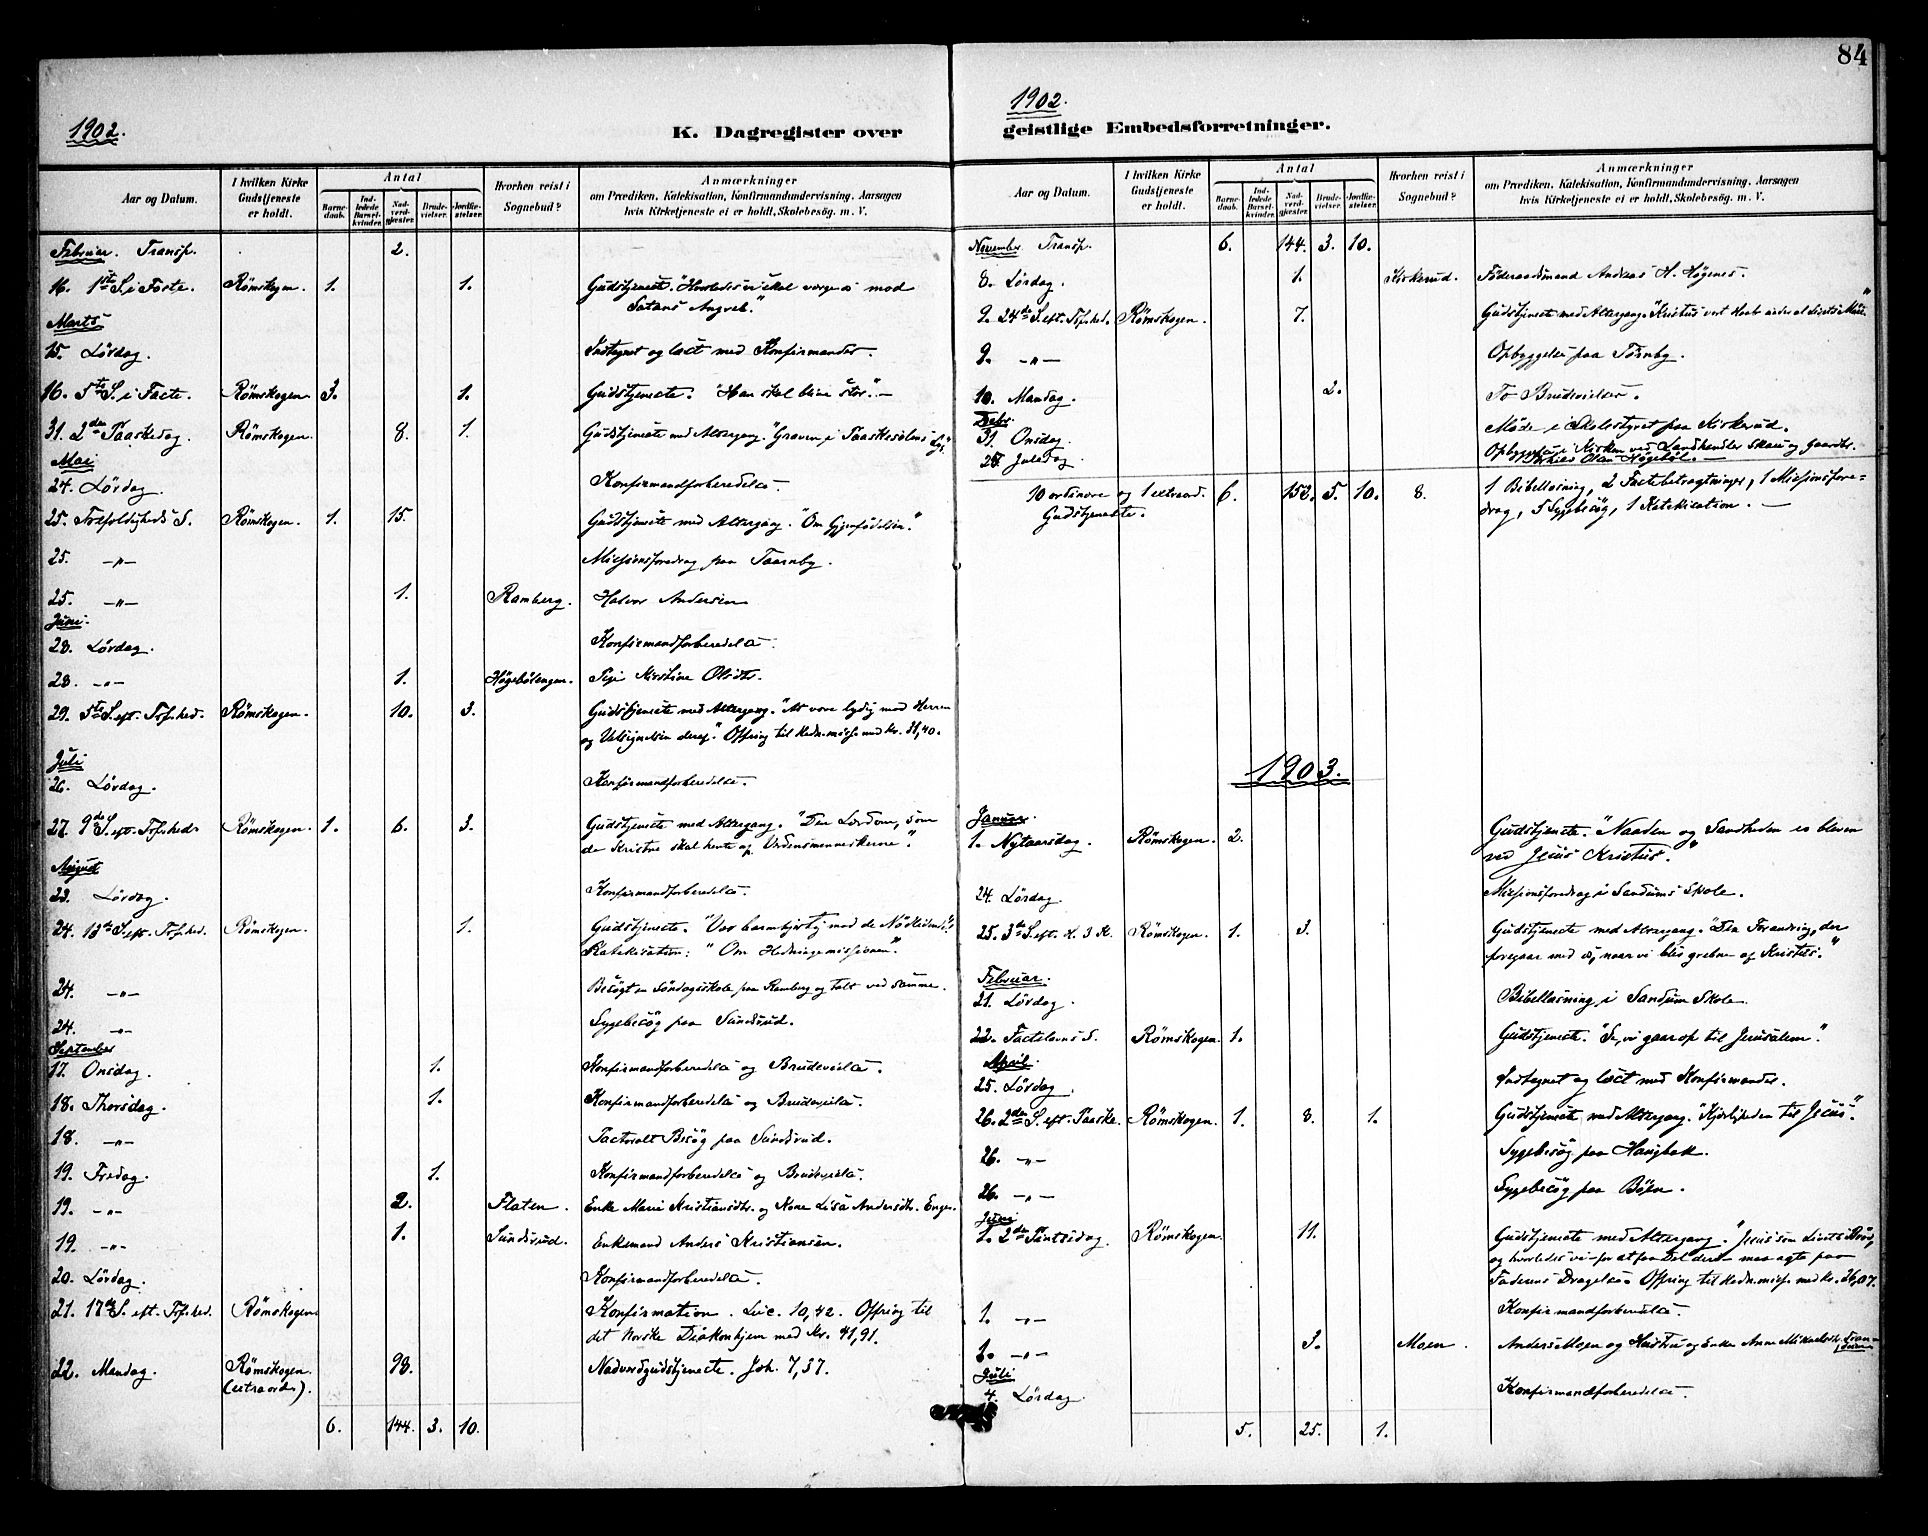 84
1902.
K. Dagregister over
Aar og Datum.
I hvilken Kirke Gudstjeneste er holdt.
Antal
Barnedaab.
Indledede Barselkvinder.
Nadverdgjester.
Brudevielser.
Jordfæstelser.
Hvorhen reist i Sognebud?
Anmærkninger
om Prædiken, Katekisation, Konfirmandundervisning, Aarsagen
hvis Kirketjeneste ei er holdt, Skolebesøg. m. V.
Februar. Transp. 2.
16. 1ste S. i Faste. Rømskogen. 1. 1. Gudstjeneste. "Hvorledes vi skal værge os mod
Satans Angreb."
Marts
15. Lørdag. Indtegnet og læst med Konfirmander.
16. 5te S. i Faste. Rømskogen. 3. 1. Gudstjeneste. "Han skal blive stor." —
31. 2den Paaskedag. Rømskogen. 8. 1. Gudstjeneste med Altergang. "Graven i Paaskesolens Lys."
Mai
24. Lørdag. Konfirmandforberedelse.
25. Trefoldigheds S. Rømskogen. 1. 15. Gudstjeneste med Altergang. "Om Gjenfødelsen."
25. —„— Missionsforedrag paa Taarnby.
25. —„— 1. Ramberg. Halvor Andersen
Juni.
28. Lørdag. Konfirmandforberedelse.
28. —„— 1. Høgebølengen. Pige Kirstine Olsdtr.
29. 5te S. eft. Trf.hed. Rømskogen. 10. 3. Gudstjeneste med Altergang. "At være lydig mod Herren
og Velsignelsen deraf." Offring til Hedn.miss. med Kr. 31,40.
Juli
26. Lørdag. Konfirmandforberedelse.
27. 9de S. eft. Trf.hed. Rømskogen. 1. 6. 3. Gudstjeneste med Altergang. "Den Lærdom, som
de Kristne skal hente af Verdensmenneskerne".
August
23. Lørdag. Konfirmandforberedelse.
24. 13de S. eft. Trf.hed. Rømskogen. 1. Gudstjeneste. "Vær barmhjertig mod de Nødlidende."
Katekisation: "Om Hedningemissionen".
24. —„— Besøgt en Søndagsskole paa Ramberg og talt ved samme.
24. —„— Sygebesøg paa Sundsrud.
September
17. Onsdag. 1. Konfirmandforberedelse og Brudevielse.
18. Thorsdag. 1. Konfirmandforberedelse og Brudevielse.
18. —„— Pastoralt Besøg paa Sundsrud.
19. Fredag. 1. Konfirmandforberedelse og Brudevielse.
19. —„— 2. Flaten. Enke Marie Kristiansdtr. og Kone Lisa Andersdtr. Engen.
19. —„— 1. Sundsrud. Enkemand Anders Kristiansen.
20. Lørdag. Konfirmandforberedelse.
21. 17de S. eft. Trf.hed. Rømskogen Konfirmation. Luc. 10,42. Offring til
det Norske Diakonhjem med Kr. 41,91.
22. Mandag. Rømskogen. 98. Nadverdgudstjeneste. Joh. 7,37.
(extraord.).
6. 144. 3. 10.
1902.
geistlige Embedsforretninger.
Aar og Datum.
I hvilken Kirke Gudstjeneste er holdt.
Antal
Barnedaab.
Indledede Barselkvinder.
Nadverdgjester.
Brudevielser.
Jordfæstelser.
Hvorhen reist i Sognebud?
Anmærkninger
om Prædiken, Katekisation, Konfirmandundervisning, Aarsagen
hvis Kirketjeneste ei er holdt, Skolebesøg. m. V.
November. Transp. 6. 144. 3. 10.
8. Lørdag. 1. Kirkerud. Føderaadsmand Andreas H. Høgenes.
9. 24de S. eft. Trf.hed. Rømskogen. 7. Gudstjeneste med Altergang. "Kristus vort Haab under al Livets Møie."
9. —„— Opbyggelse paa Tørnby.
10. Mandag. 2. To Brudevielser.
Decbr.
31. Onsdag. Møde i Skolestyret paa Kirkerud.
25. Juledag. Opbyggelse i Kirken ved Landhandler Skau og Gaardbr.
Olau Høgebøl. —
10 ordinære og 1 extraord. 6. 152. 5. 10. 8. 1 Bibellæsning, 2 Fastebetragtninger, 1 Missionsfore-
Gudstjeneste. drag, 5 Sygebesøg, 1 Katekisation. —
1903.
Januar.
1. Nytaarsdag. Rømskogen. 2. Gudstjeneste. "Naaden og Sandheden er bleven
ved Jesus Kristus."
24. Lørdag. Missionsforedrag i Sandums Skole.
25. 3de S. eft. H. 3 K. Rømskogen. 1. 3. Gudstjeneste med Altergang. "Den Forandring, der
foregaar med os, naar vi blir grebne af Kristus."
Februar.
21. Lørdag. Bibellæsning i Sandum Skole.
22. Fastelavns S. Rømskogen. 1. Gudstjeneste. "Se, vi gaar op til Jerusalem".
April.
25. Lørdag. Indtegnet og læst med Konfirmander.
26. 2den S. eft. Paaske. Rømskogen. 1. 8. 1. Gudstjeneste med Altergang. "Kjærligheden til Jesus".
26. —„— Sygebesøg paa Haugbak.
26. —„— Sygebesøg paa Bøen.
Juni
1. 2den Pintsedag. Rømskogen. 11. Gudstjeneste med Altergang. "Jesus som Livets Brød,
og hvorledes vi — for at faa Del deri — maa agte paa
Faderens Dragelse. Offring til Hedn.miss. med Kr. 26,07.
1. —„— Konfirmandforberedelse.
1. —„— 3. Moen. Anders Moen og Hustru og Enke Anne
Juli
4. Lørdag. Konfirmandforberedelse.
5. 25. 1.